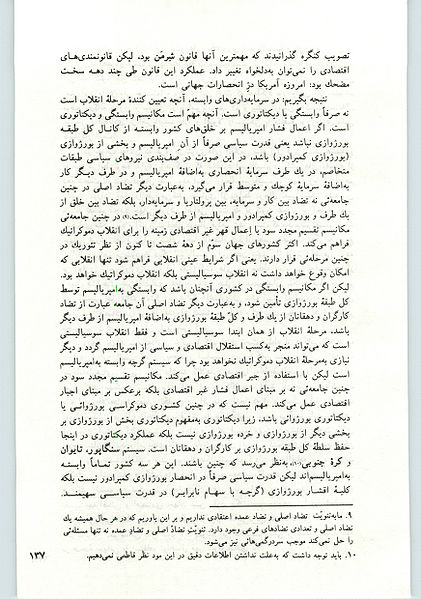 تصویب کنگره گذرانیدند که مهمترین آنها قانون شرمَن بود، لیکن قانونمندی‌های
اقتصادی را نمی‌توان به‌دلخواه تغییر داد. عملکرد این قانون طی چند دهه سخت
مضحک بود: امروزه آمریکا دژ انحصارات جهانی است.
نتیجه بگیریم: در سرمایه‌داری‌های وابسته، آنچه تعیین کنندهٔ مرحلهٔ انقلاب است
نه صرفاً وابستگی یا دیکتاتوری است. آنچه مهم است مکانیسم وابستگی و دیکتاتوری
است. اگر اعمال فشار امپریالیسم بر خلق‌های کشور وابسته از کانال کل طبقه
بورژوازی نباشد یعنی قدرت سیاسی صرفاً از آن امپریالیسم و بخشی از بورژوازی
(بورژوازی کمپرادور) باشد، در این صورت در صف‌بندی نیروهای سیاسی طبقات
متخاصم، در یك طرف سرمایهٔ انحصاری به‌اضافهٔ امپریالیسم و در طرف دیگر کار
به‌اضافهٔ سرمایهٔ کوچك و متوسط قرار می‌گیرد، به‌عبارت دیگر تضاد اصلی در چنین
جامعه‌ئی نه تضاد بین کار و سرمایه، بین پرولتاریا و سرمایه‌دار، بلکه تضاد بین خلق از
یك طرف و بورژوازی کمپرادور و امپریالیسم از طرف دیگر است.(۹) در چنین جامعه‌ئی
مکانیسم تقسیم مجدد سود با إعمال قهر غیر اقتصادی زمینه را برای انقلاب دموکراتیك
فراهم می‌کند. اکثر کشورهای جهان سوم از دههٔ شصت تا کنون از نظر تئوریك در
چنین مرحله‌ئی قرار دارند. یعنی اگر شرایط عینی انقلابی فراهم شود تنها انقلابی که
امکان وقوع خواهد داشت نه انقلاب سوسیالیستی بلکه انقلاب دموکراتیك خواهد بود.
لیکن اگر مکانیسم وابستگی در کشوری آنچنان باشد که وابستگی به‌امپریالیسم توسط
کل طبقهٔ بورژوازی تأمین شود، و به‌عبارت دیگر تضاد اصلی آن جامعه عبارت از تضاد
کارگران و دهقانان از یك طرف و کلّ طبقهٔ بورژوازی به‌اضافهٔ امپریالیسم از طرف دیگر
باشد، مرحلهٔ انقلاب از همان ابتدا سوسیالیستی است و فقط انقلاب سوسیالیستی
است که می‌تواند منجر به‌کسب استقلال اقتصادی و سیاسی از امپریالیسم گردد و دیگر
نیازی به‌مرحلهٔ انقلاب دموکراتیك نخواهد بود چرا که سیستم گرچه وابسته به‌امپریالیسم
است لیکن با استفاده از جبر اقتصادی عمل می‌کند. مکانیسم تقسیم مجدد سود در
چنین جامعه‌ئی نه بر مبنای اعمال فشار غیر اقتصادی بلکه برعکس بر مبنای اجبار
اقتصادی عمل می‌کند. مهم نیست که در چنین کشوری دموکراسی بورژوائی یا
دیکتاتوری بورژوائی باشد، زیرا دیکتاتوری به‌مفهوم دیکتاتوری بخش از بورژوازی بر
بخشی دیگر از بورژوازی و خرده بورژوازی نیست بلکه عملکرد دیکتاتوری در اینجا
حفظ سلطهٔ کل طبقه بورژوازی بر کارگران و دهقانان است. سیستم سنگاپور، تایوان
و کرهٔ جنوبی(۱۰)، به‌نظر می‌رسد که چنین باشند. این هر سه کشور تماماً وابسته
به‌امپریالیسم‌اند لیکن قدرت سیاسی صرفاً در انحصار بورژوازی کمپرادور نیست بلکه
کلیهٔ اقشار بورژوازی (گرچه با سهام نابرابر) در قدرت سیاسی سهیمند.
۹. ما به‌ثنویّت تضاد اصلی و تضاد عمده اعتقادی نداریم و بر این باوریم که در هر حال همیشه یك
تضاد اصلی و تعدادی تضادهای فرعی وجود دارد. ثنویّتِ تضاد اصلی و تضادِ عمده نه تنها مسئله‌ئی
را حل نمی‌کند موجب سردرگمی‌هائی نیز می‌شود.
۱۰. باید توجه داشت که به‌علت نداشتن اطلاعات دقیق در این مود نظر قاطعی نمی‌دهیم.
۱۳۷